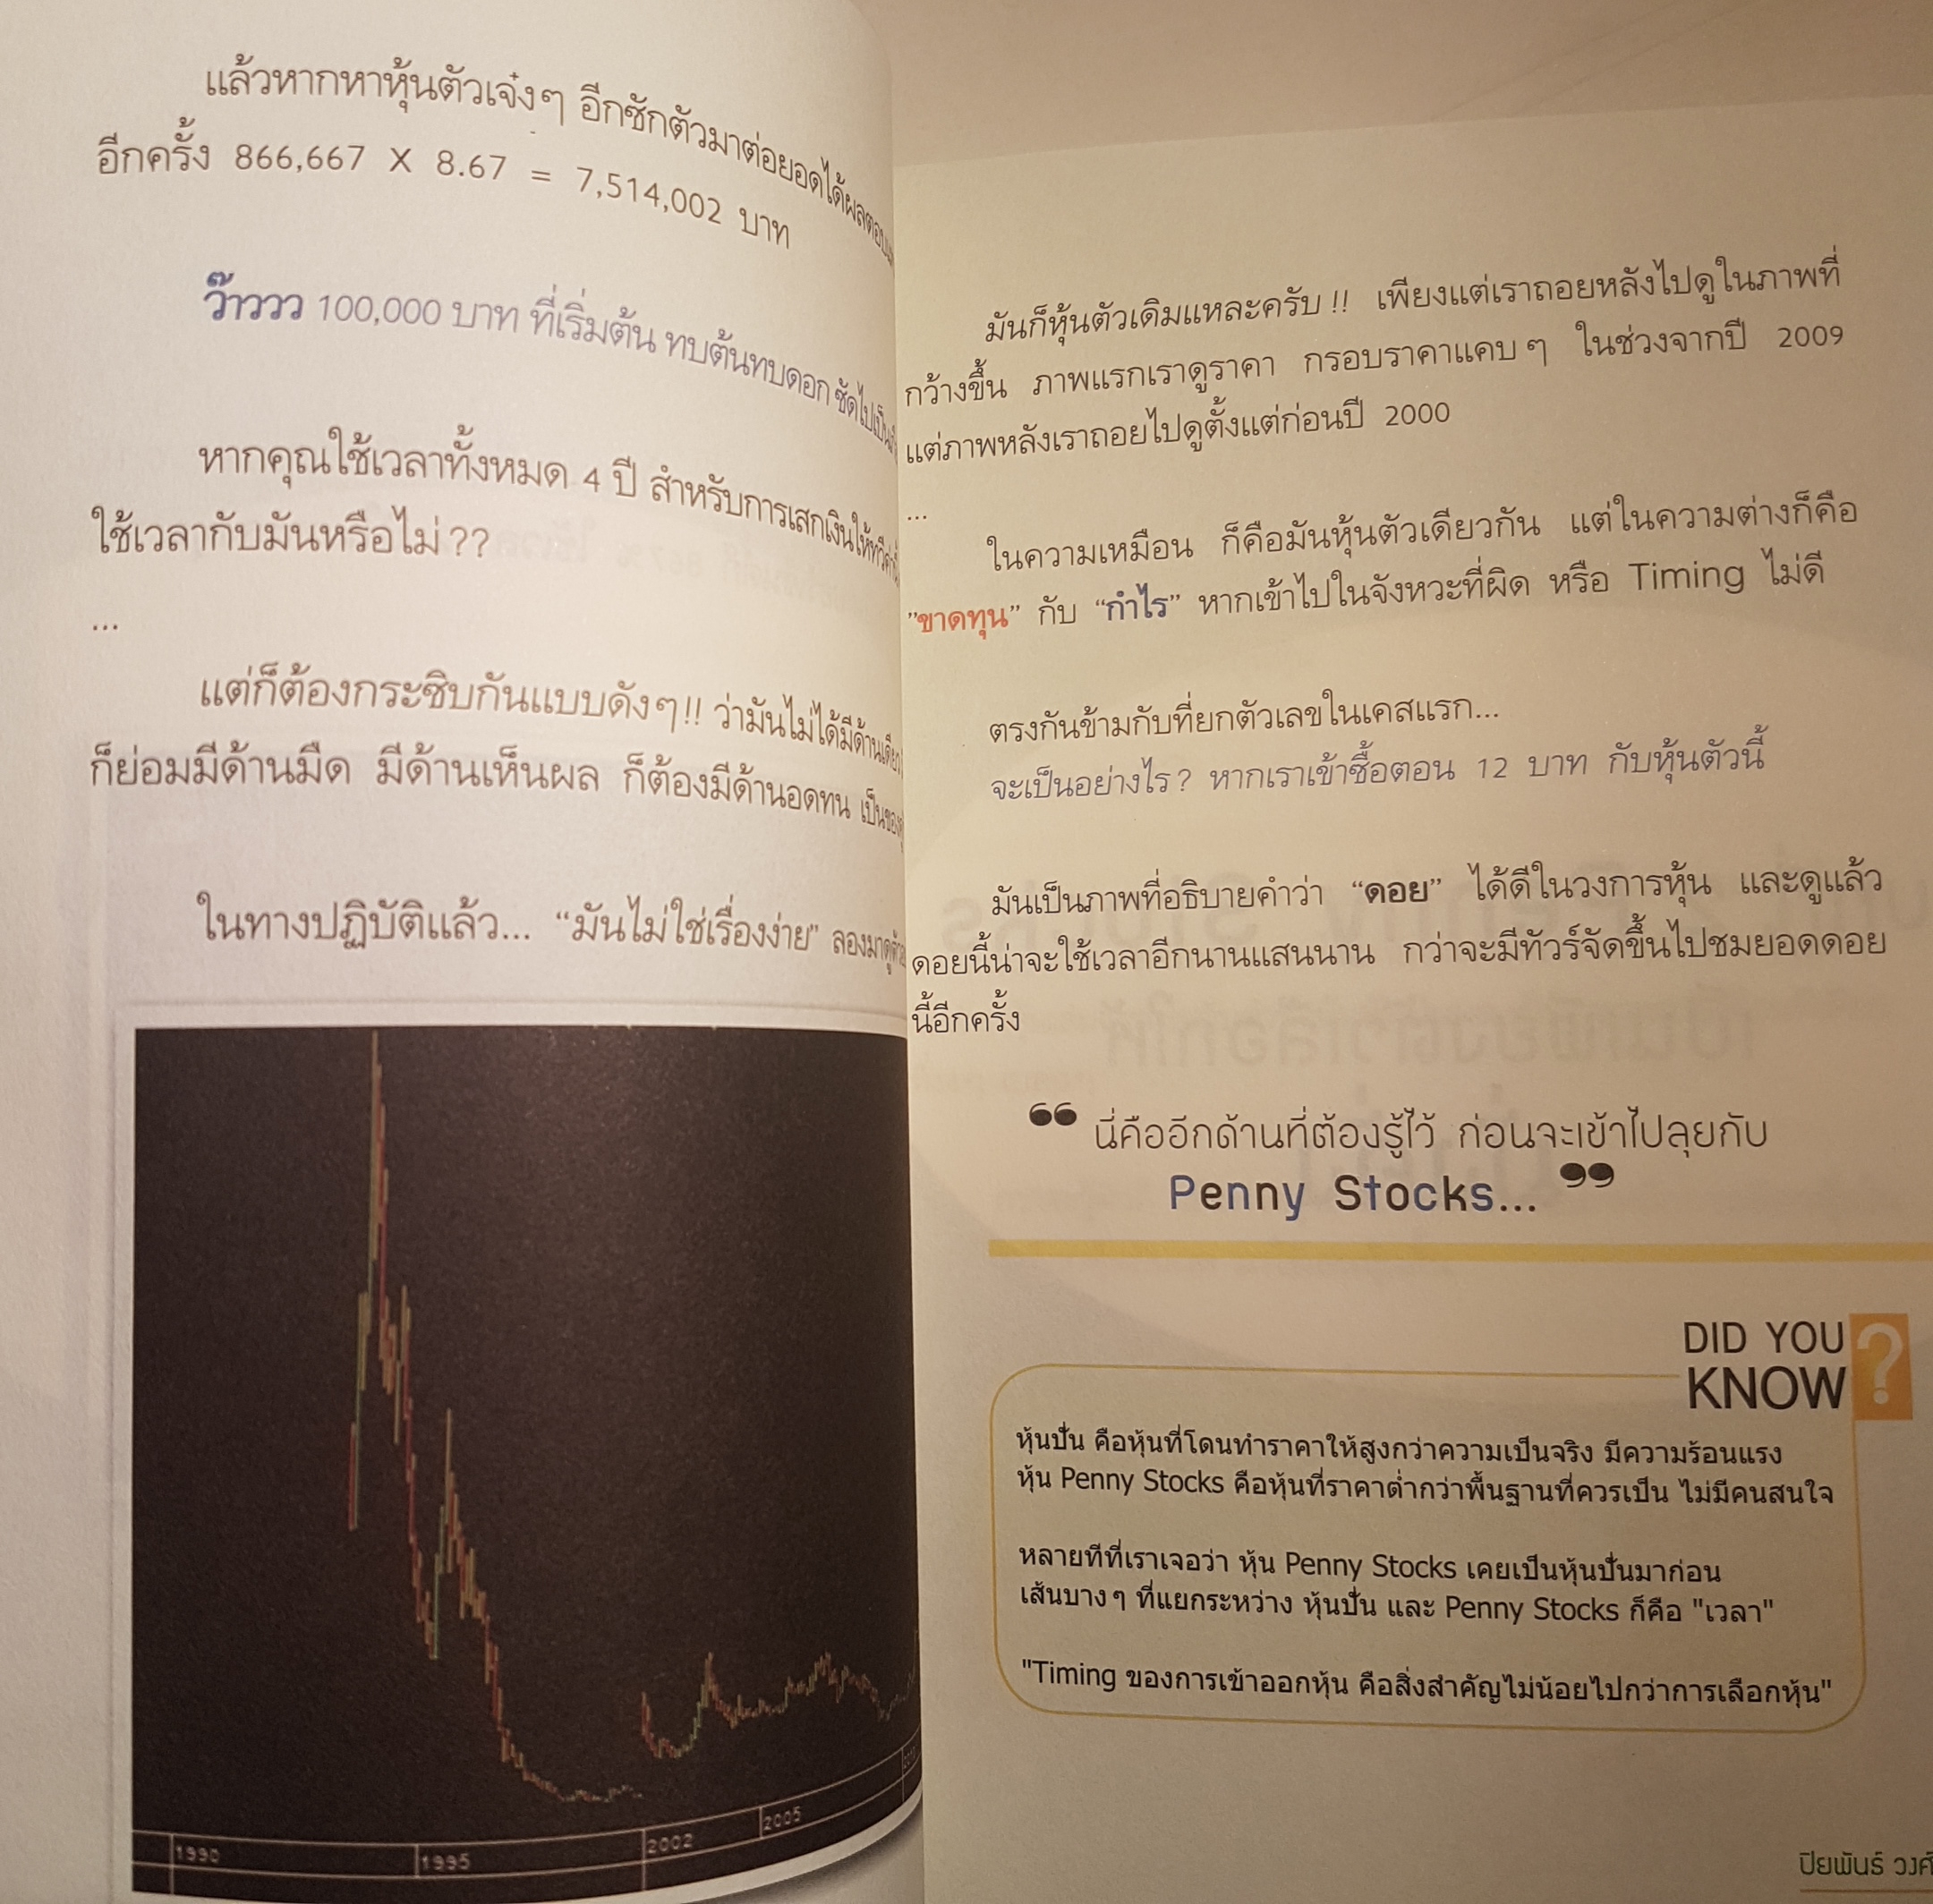 แล้วหากหาหุ้นตัวเจ๋งๆ อีกซักตัวมาต่อยอดได้ผลตอบ
อีกครั้ง 866,667 X 8.67 = 7,514,002 บาท
ว๊าววว 100,000 บาท ที่เริ่มต้น ทบต้นทบดอก ซัดไปเป็น
หากคุณใช้เวลาทั้งหมด 4 ปี สำหรับการเสกเงินให้ทวีค่า
ใช้เวลากับมันหรือไม่ ??
...
แต่ก็ต้องกระซิบกันแบบดังๆ!! ว่ามันไม่ได้มีด้านเดียว
ก็ย่อมมีด้านมืด มีด้านเห็นผล ก็ต้องมีด้านอดทน เป็นของ
ในทางปฏิบัติแล้ว... “มันไม่ใช่เรื่องง่าย” ลองมาดู
1990
1995
2002
2005
มันก็หุ้นตัวเดิมแหละครับ !! เพียงแต่เราถอยหลังไปดูในภาพที่
กว้างขึ้น ภาพแรกเราดูราคา กรอบราคาแคบๆ ในช่วงจากปี 2009
แต่ภาพหลังเราถอยไปดูตั้งแต่ก่อนปี 2000
...
ในความเหมือน ก็คือมันหุ้นตัวเดียวกัน แต่ในความต่างก็คือ
”ขาดทุน” กับ “กำไร” หากเข้าไปในจังหวะที่ผิด หรือ Timing ไม่ดี
ตรงกันข้ามกับที่ยกตัวเลขในเคสแรก...
จะเป็นอย่างไร ? หากเราเข้าซื้อตอน 12 บาท กับหุ้นตัวนี้
มันเป็นภาพที่อธิบายคำว่า “ดอย” ได้ดีในวงการหุ้น และดูแล้ว
ดอยนี้น่าจะใช้เวลาอีกนานแสนนาน กว่าจะมีทัวร์จัดขึ้นไปชมยอดดอย
นี้อีกครั้ง
“ นี่คืออีกด้านที่ต้องรู้ไว้ ก่อนจะเข้าไปลุยกับ
Penny Stocks... ”
DID YOU
KNOW ?
หุ้นปั่น คือหุ้นที่โดนทำราคาให้สูงกว่าความเป็นจริง มีความร้อนแรง
หุ้น Penny Stocks คือหุ้นที่ราคาต่ำกว่าพื้นฐานที่ควรเป็น ไม่มีคนสนใจ
หลายทีที่เราเจอว่า หุ้น Penny Stocks เคยเป็นหุ้นปั่นมาก่อน
เส้นบางๆ ที่แยกระหว่าง หุ้นปั่น และ Penny Stocks ก็คือ "เวลา"
"Timing ของการเข้าออกหุ้น คือสิ่งสำคัญไม่น้อยไปกว่าการเลือกหุ้น"
ปิยพันธ์ วงศ์